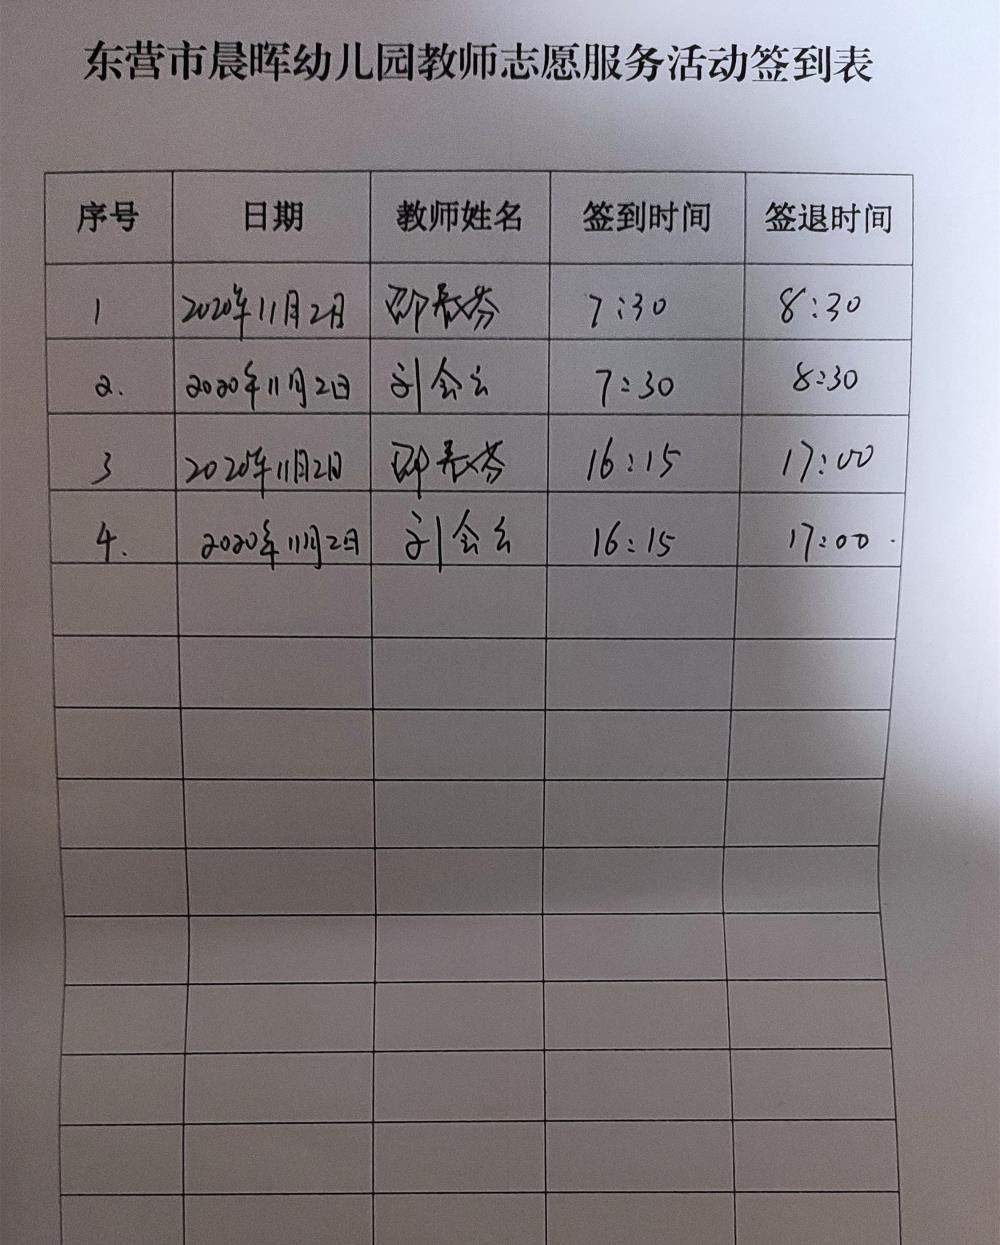 东营市晨晖幼儿园教师志愿服务活动签到表
序号 日期 教师姓名 签到时间 签退时间
1 2020年11月2日 邵 芬 7:30 8:30
2. 2020年11月2日 刘会云 7:30 8:30
3 2020年11月2日 邵 芬 16:15 17:00
4. 2020年11月2日 刘会云 16:15 17:00